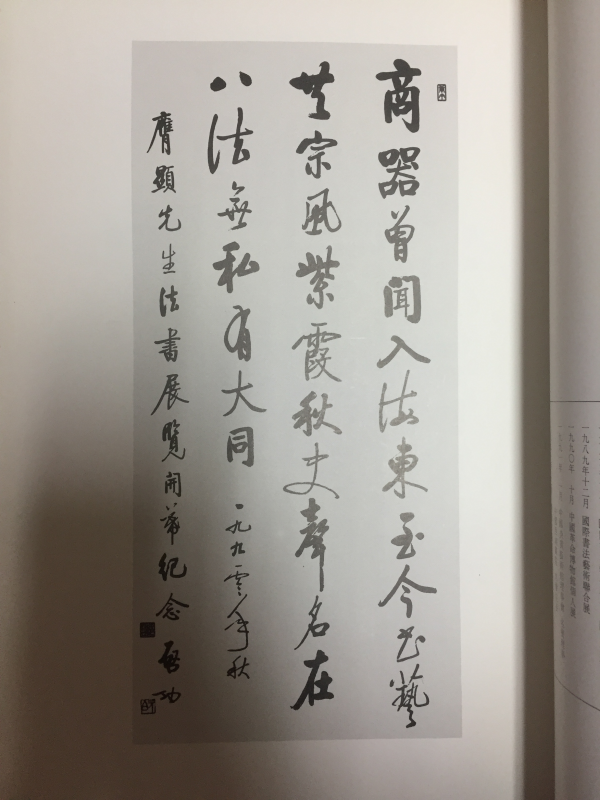 商器曾聞入海東至今书藝
共宗風紫霞秋史聲名在
八法無私有大同 一九九零年秋
膺顯先生法書展覽開幕紀念 啓功
一九八九年十二月 國際書法藝術聯合展
一九九〇年 十月 中國革命博物館個人展